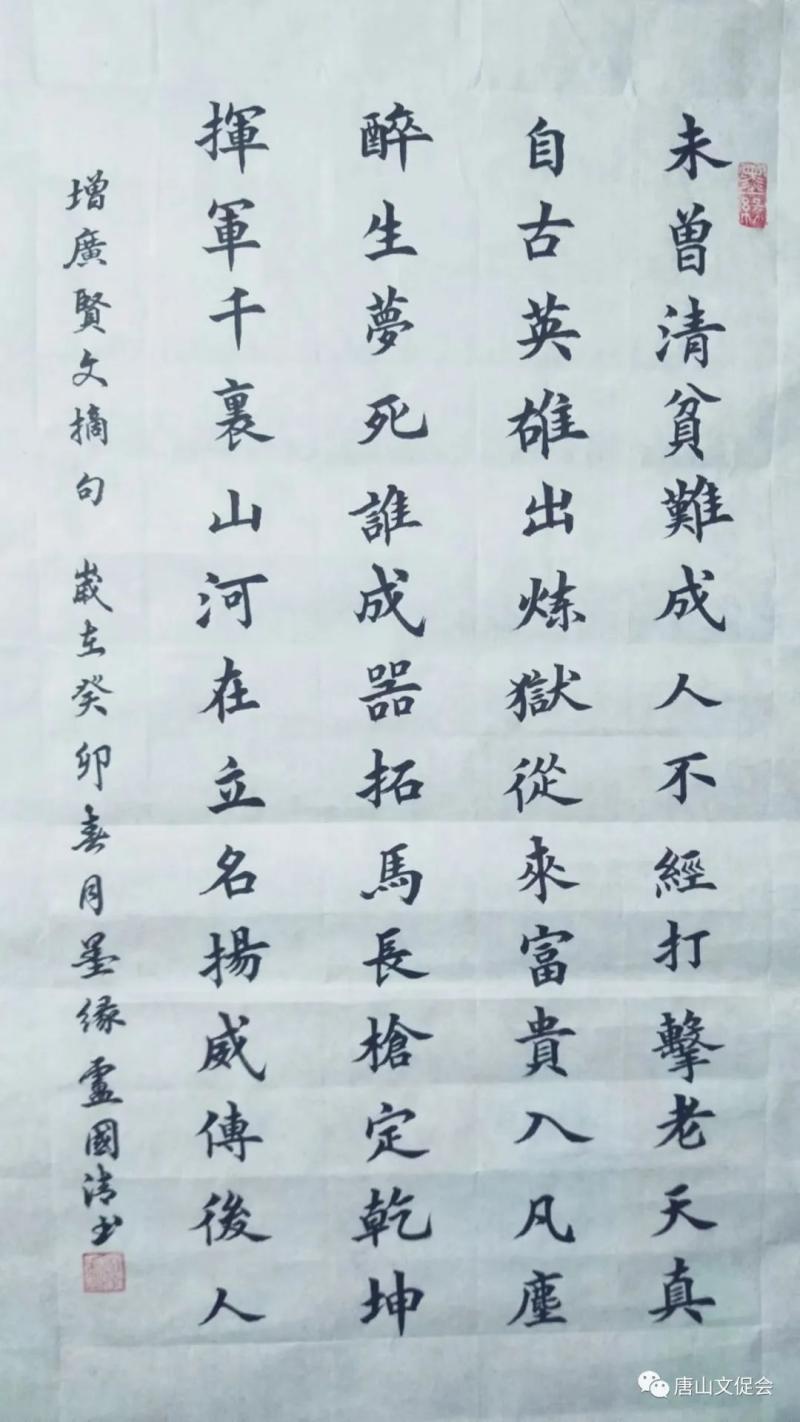 未曾清貧難成人不經打擊老天真
自古英雄出煉獄從來富貴入凡塵
醉生夢死誰成器拓馬長槍定乾坤
揮軍千裏山河在立名揚威傳後人
增廣賢文摘句 歲在癸卯春月墨緣盧國清书
墨緣
唐山文促会